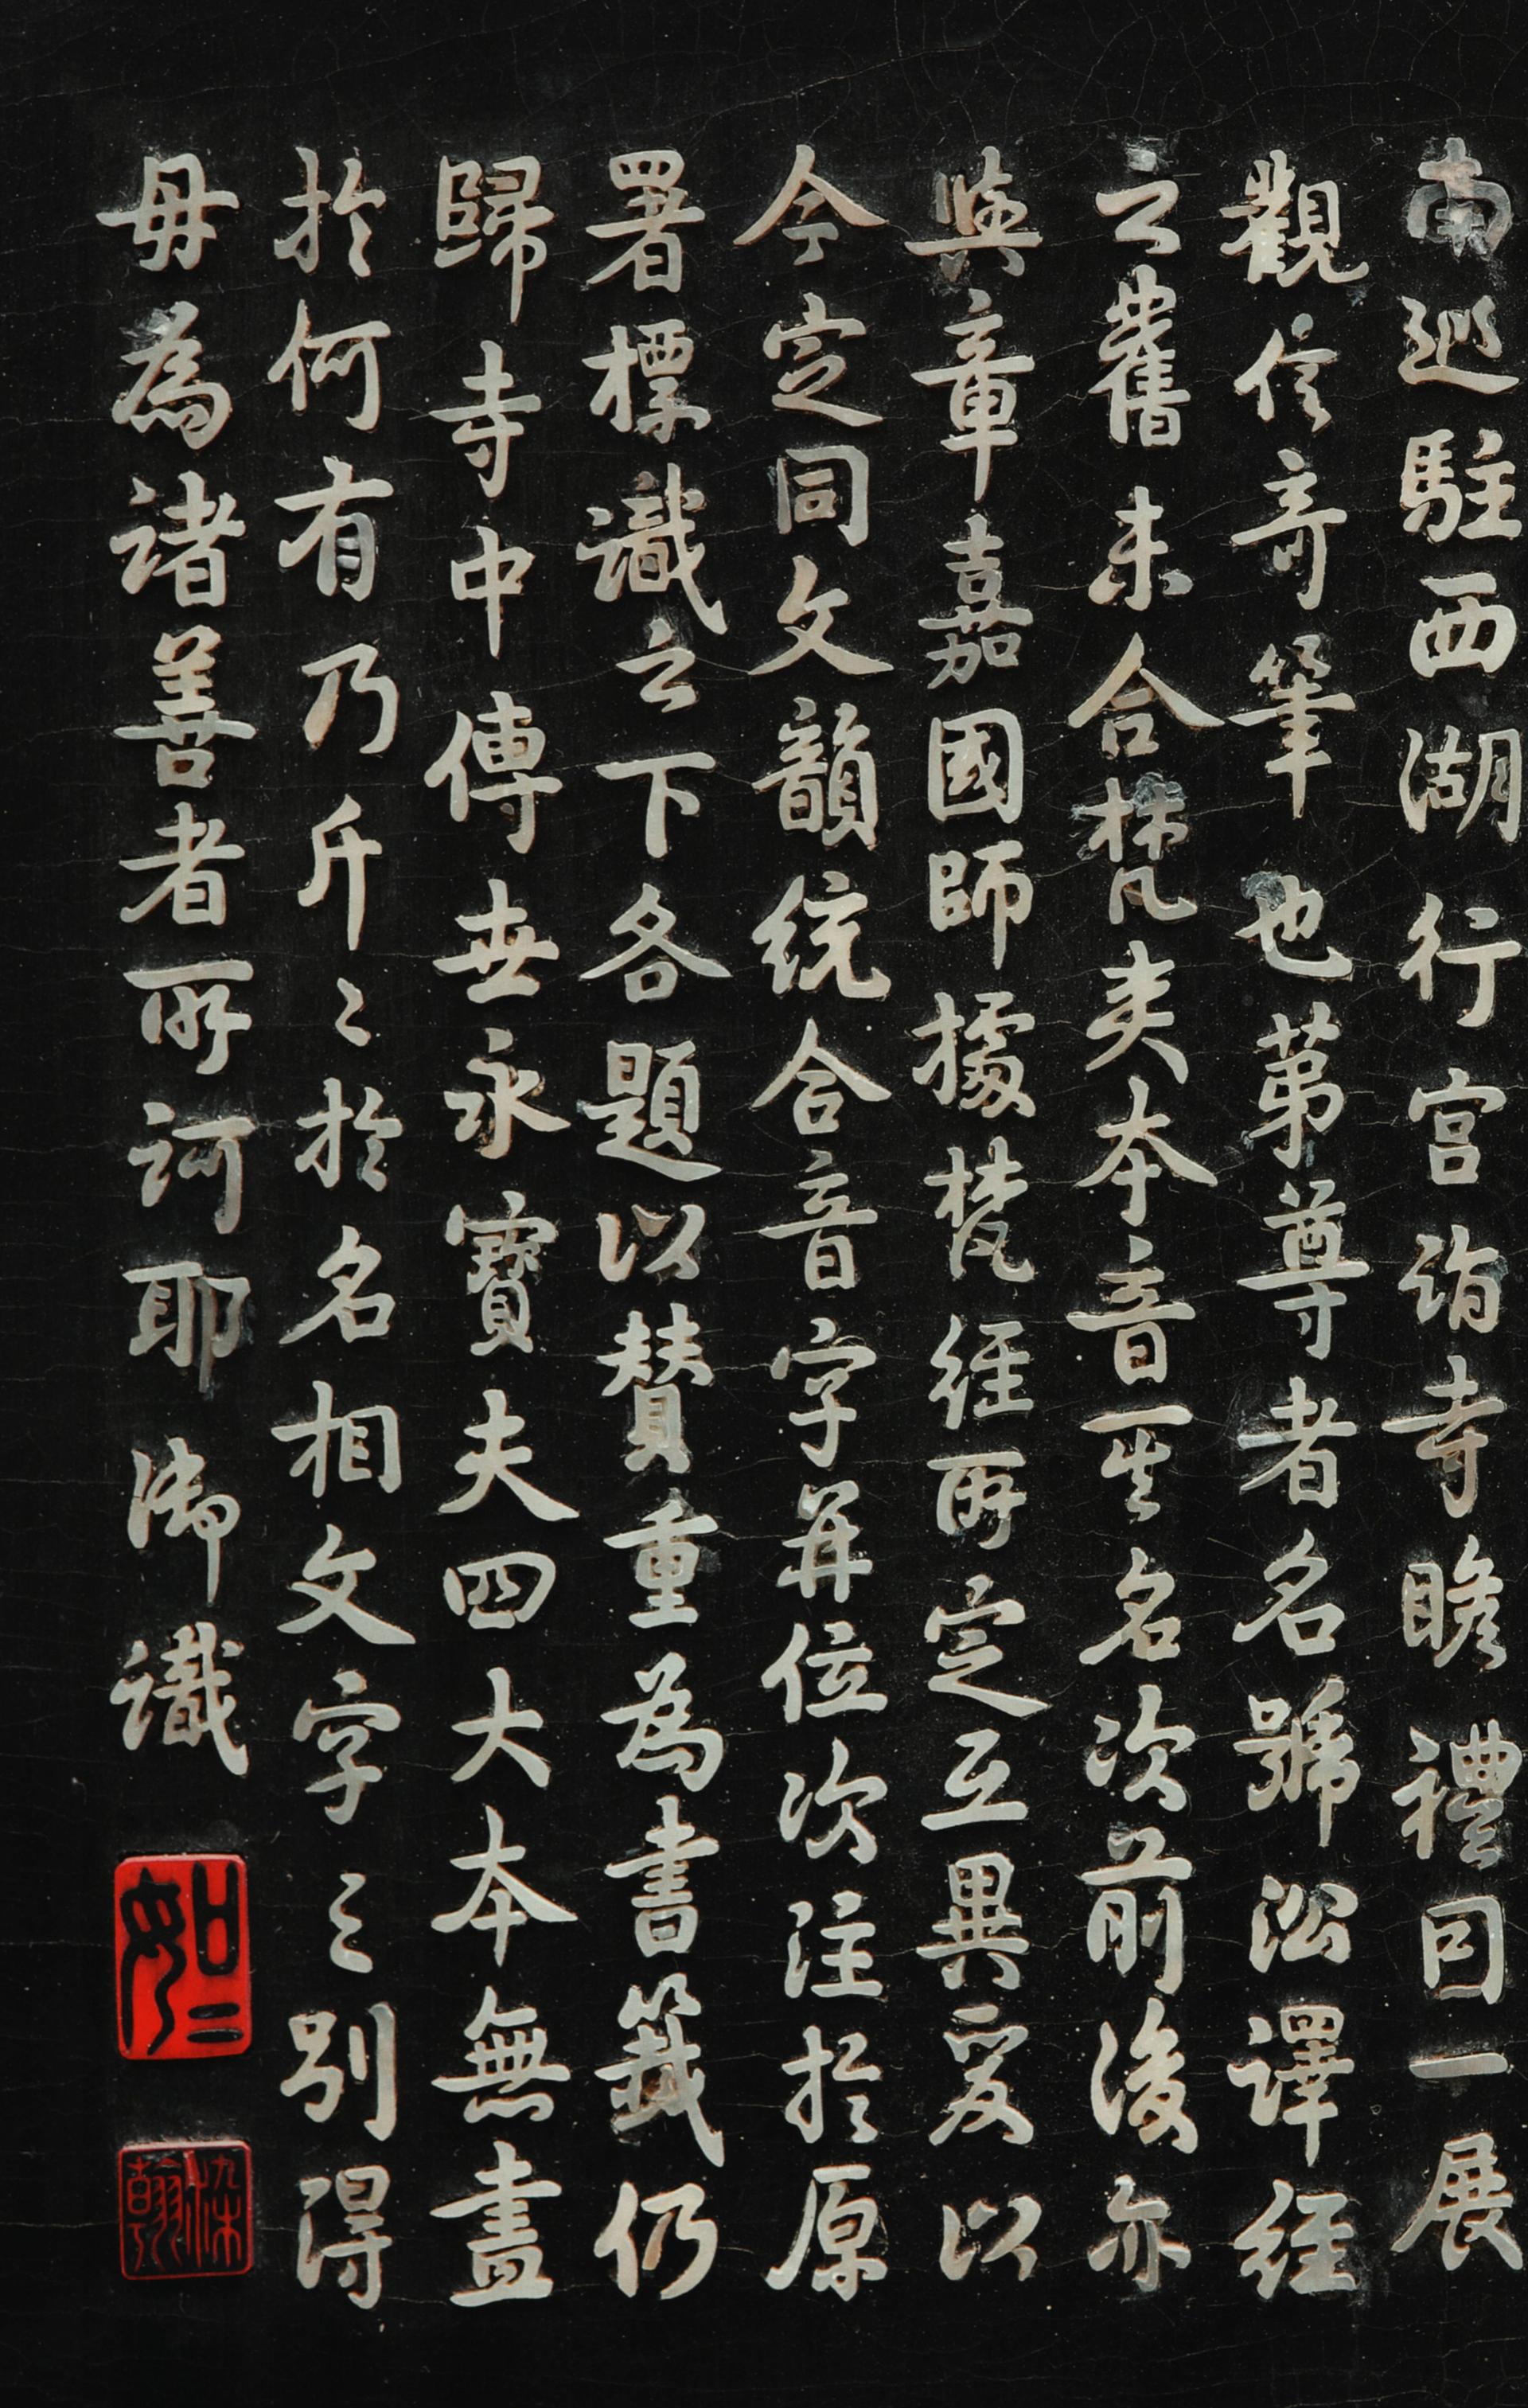 南巡駐西湖行宮詣寺瞻禮因一展
觀信奇筆也第尊者名號沿譯經
之舊未合梵夾本音其名次前後亦
與章嘉國師據梵經所定互異爰以
今定同文韻統合音字并位次注於原
署標識之下各題以贊重為書籤仍
歸寺中傳世永寶夫四大本無畫
於何有乃斤〻於名相文字之別得
毋為諸善者所訶耶御識
如二
染翰